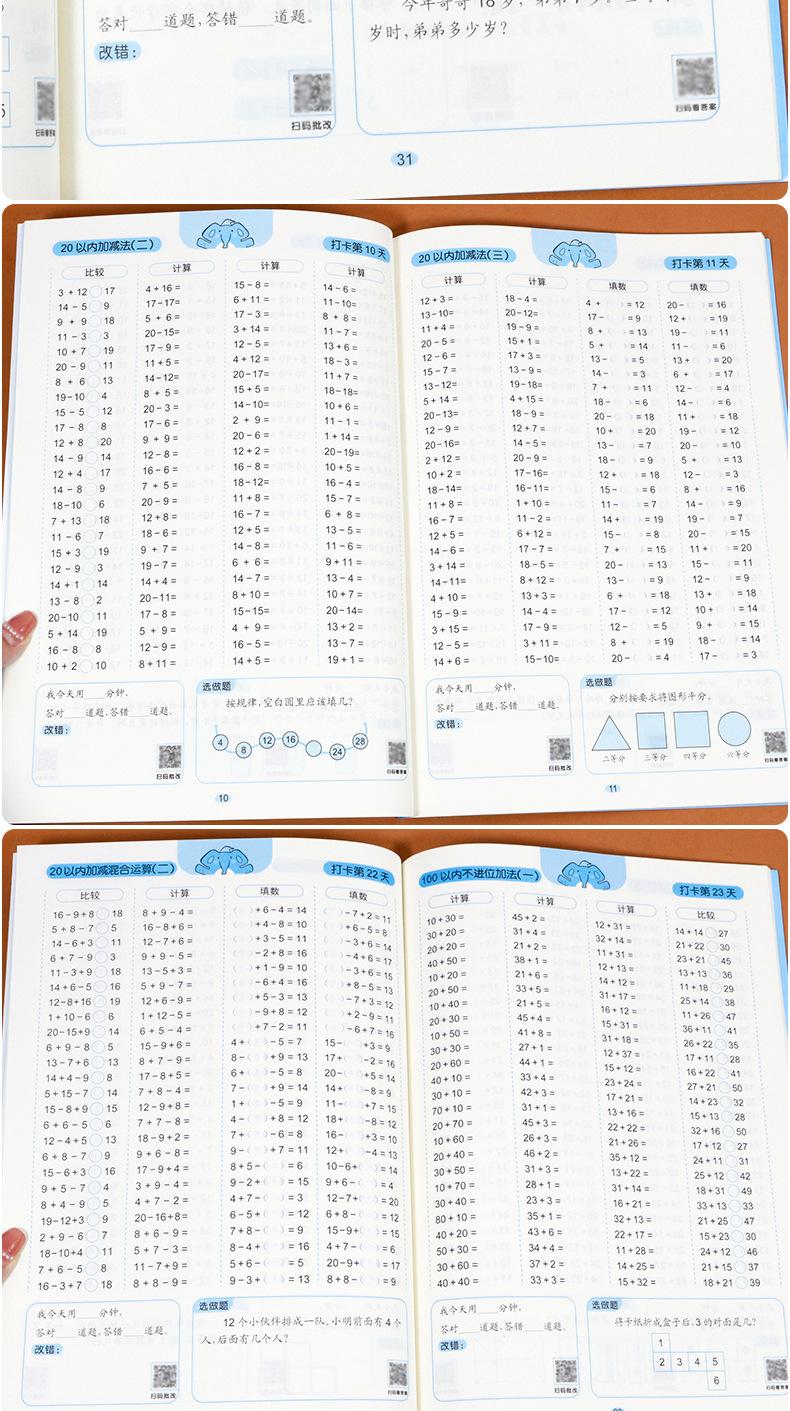 答对____道题,答错____道题。
改错:
扫码批改
岁时,弟弟多少岁?
扫码看答案
31
20以内加减法(二)
打卡第10天
比较
3 + 12 ○ 17
14 - 5 ○ 9
9 + 9 ○ 18
11 - 3 ○ 3
10 + 7 ○ 19
20 - 9 ○ 11
8 + 6 ○ 13
19-10 ○ 4
15 - 5 ○ 12
17 - 8 ○ 8
12 + 8 ○ 20
14 - 9 ○ 14
12 + 4 ○ 17
14 - 8 ○ 9
18-10 ○ 6
7 + 13 ○ 18
11 - 6 ○ 7
15 + 3 ○ 19
12 - 9 ○ 3
14 + 1 ○ 14
13 - 8 ○ 2
20-10 ○ 11
5 + 14 ○ 19
16 - 8 ○ 8
10 + 2 ○ 10
计算
4 + 16 =
17-17=
5 + 6 =
20-15=
17 - 9 =
11 + 5 =
14-12=
8 + 5 =
20 - 3 =
17 - 6 =
9 + 9 =
12 - 8 =
16 - 6 =
7 + 5 =
20 - 9 =
12 + 8 =
18 - 6 =
9 + 7 =
19 - 7 =
14 + 4 =
20-11=
17 - 8 =
5 + 9 =
12 - 9 =
8 + 11 =
计算
15 - 8 =
6 + 11 =
17 - 3 =
3 + 14 =
12 - 5 =
4 + 12 =
20-17=
15 + 5 =
14-10=
2 + 9 =
20 - 6 =
12 + 2 =
16 - 8 =
18-12=
11 + 8 =
16 - 7 =
12 + 5 =
14 - 8 =
6 + 6 =
14 - 7 =
8 + 10 =
15-15=
4 + 9 =
16 - 5 =
14 + 5 =
计算
14 - 6 =
11-10=
8 + 8 =
11 - 7 =
13 + 6 =
18 - 3 =
11 + 7 =
18-18=
10 + 6 =
11 - 1 =
1 + 14 =
20-19=
10 + 5 =
16 - 4 =
15 - 7 =
6 + 8 =
13 - 5 =
11 - 6 =
9 + 11 =
13 - 4 =
10 + 7 =
20-14=
13 + 2 =
13 - 7 =
19 + 1 =
我今天用____分钟,
答对____道题,答错____道题。
改错:
扫码批改
选做题
按规律,空白圆里应该填几?
4 8 12 16 24 28
扫码看答案
10
20以内加减法(三)
打卡第11天
计算
12 + 3 =
13-10=
11 + 4 =
20 - 5 =
12 - 6 =
15 - 7 =
13-12=
5 + 14 =
20-13=
12 - 9 =
20-16=
2 + 12 =
10 + 2 =
18-14=
11 + 8 =
16 - 7 =
12 + 5 =
14 - 6 =
3 + 14 =
14-11=
4 + 10 =
15 - 9 =
3 + 15 =
12 - 5 =
14 + 6 =
计算
18 - 4 =
20-12=
19 - 9 =
15 + 1 =
17 + 3 =
13 - 9 =
19-18=
4 + 15 =
18 - 9 =
12 + 7 =
14 - 5 =
20 - 9 =
17-16=
16-11=
1 + 10 =
11 - 2 =
6 + 12 =
17 - 7 =
18 - 5 =
8 + 12 =
13 + 3 =
14 - 4 =
17 - 9 =
3 + 11 =
15-10=
填数
4 + ( ) = 12
17 - ( ) = 9
8 + ( ) = 13
5 + ( ) = 14
13 - ( ) = 5
14 - ( ) = 3
7 + ( ) = 11
18 - ( ) = 6
20 - ( ) = 18
10 + ( ) = 20
13 - ( ) = 7
18 - ( ) = 9
12 + ( ) = 18
15 - ( ) = 6
11 - ( ) = 7
14 + ( ) = 19
15 - ( ) = 8
7 + ( ) = 15
20 - ( ) = 13
13 - ( ) = 9
6 + ( ) = 18
17 - ( ) = 12
12 - ( ) = 5
8 + ( ) = 19
20 - ( ) = 4
填数
20 - ( ) = 16
12 + ( ) = 19
19 - ( ) = 11
11 - ( ) = 6
13 + ( ) = 20
6 + ( ) = 17
12 - ( ) = 4
14 - ( ) = 6
11 + ( ) = 18
19 - ( ) = 12
20 - ( ) = 10
5 + ( ) = 13
12 - ( ) = 3
8 + ( ) = 16
14 - ( ) = 9
19 - ( ) = 7
20 - ( ) = 15
11 + ( ) = 20
15 - ( ) = 11
12 - ( ) = 9
13 + ( ) = 18
10 + ( ) = 14
9 + ( ) = 15
18 - ( ) = 14
17 - ( ) = 3
我今天用____分钟,
答对____道题,答错____道题。
改错:
扫码批改
选做题
分别按要求将图形平分。
二等分 三等分 四等分 六等分
扫码看答案
11
20以内加减混合运算(二)
打卡第22天
比较
16-9+8 ○ 18
5+8-7 ○ 5
14-6+3 ○ 11
6+7-9 ○ 3
11-3+9 ○ 18
14+6-5 ○ 16
12-8+16 ○ 19
1+10-6 ○ 6
20-15+9 ○ 14
6+9-8 ○ 5
13-7+6 ○ 13
14+4-9 ○ 8
5+15-7 ○ 14
15-8+9 ○ 15
6+6-5 ○ 6
12-4+5 ○ 13
6+8-7 ○ 9
15-6+3 ○ 16
9+5-7 ○ 4
8+4-9 ○ 5
19-12+3 ○ 9
2+9-6 ○ 7
18-10+4 ○ 11
7+6-5 ○ 8
16-3+7 ○ 18
计算
8+9-4=
16-8+6=
12-7+6=
9+9-5=
13-5+3=
5+9-7=
12+6-9=
1+12-5=
6+5-4=
15-9+6=
8+7-9=
17-8+5=
7+8-4=
12-9+8=
7+7-8=
18-9+2=
9+6-8=
17-9+4=
3+9-4=
4+7-2=
20-16+8=
8+6-9=
5+7-3=
11-7+9=
8+8-9=
填数
( )+6-4=14
( )+4-8=10
( )+3-5=11
( )-2+8=16
( )+1-9=10
( )-6+4=16
( )+5-3=13
( )-9+8=12
( )+7-2=11
4+( )-5=7
8-( )+9=13
6+( )-5=8
7-( )+9=14
1+( )-5=9
4-( )+8=12
7+( )-6=8
9-( )+7=11
8+5-( )=6
9-2+( )=15
4+7-( )=3
6-5+( )=12
7+8-( )=9
8-4+( )=16
5+6-( )=5
9-3+( )=13
填数
( )-7+2=11
( )+6-5=8
( )-3+6=14
( )-4+6=17
( )-3+6=15
( )+8-5=13
( )-7+3=12
( )+2-9=11
( )-6+7=16
15-( )+3=9
17+( )-2=16
20-( )+5=14
14+( )-8=9
11-( )+7=15
18+( )-8=12
16-( )+3=10
12+( )-4=13
10-6+( )=14
9+6-( )=4
12-7+( )=20
6+8-( )=12
15-9+( )=15
4+7-( )=6
20-9+( )=17
8+8-( )=9
我今天用____分钟,
答对____道题,答错____道题。
改错:
扫码批改
选做题
12个小伙伴排成一队,小明前面有4个
人,后面有几个人?
扫码看答案
100以内不进位加法(一)
打卡第23天
计算
10+30=
30+20=
20+20=
40+50=
10+20=
20+50=
10+40=
20+30=
10+50=
30+30=
20+60=
40+10=
30+10=
70+10=
20+70=
10+60=
20+40=
30+50=
10+70=
30+40=
80+10=
40+20=
50+30=
30+60=
40+40=
计算
45+2=
31+4=
21+2=
38+1=
21+6=
33+5=
21+5=
45+4=
41+8=
27+1=
44+1=
33+4=
42+3=
31+1=
45+3=
26+3=
46+2=
31+3=
28+1=
23+3=
35+1=
43+6=
34+4=
37+2=
33+3=
计算
12+31=
32+14=
11+31=
12+13=
14+12=
31+17=
16+12=
15+31=
31+18=
12+37=
15+12=
23+24=
17+21=
13+16=
22+22=
21+26=
35+12=
13+22=
31+14=
16+21=
32+13=
22+17=
11+28=
14+25=
15+32=
比较
14+14 ○ 27
21+22 ○ 30
23+21 ○ 45
13+13 ○ 36
11+18 ○ 29
25+14 ○ 38
11+26 ○ 47
36+11 ○ 41
26+22 ○ 35
17+11 ○ 28
16+22 ○ 41
27+21 ○ 50
14+23 ○ 32
15+13 ○ 28
32+16 ○ 50
17+12 ○ 27
24+11 ○ 31
25+12 ○ 42
18+31 ○ 49
33+13 ○ 33
21+25 ○ 47
15+23 ○ 30
24+12 ○ 46
21+15 ○ 37
18+21 ○ 39
我今天用____分钟,
答对____道题,答错____道题。
改错:
扫码批改
选做题
将卡纸折成盒子后,3的对面是几?
1
2 3 4 5
6
扫码看答案